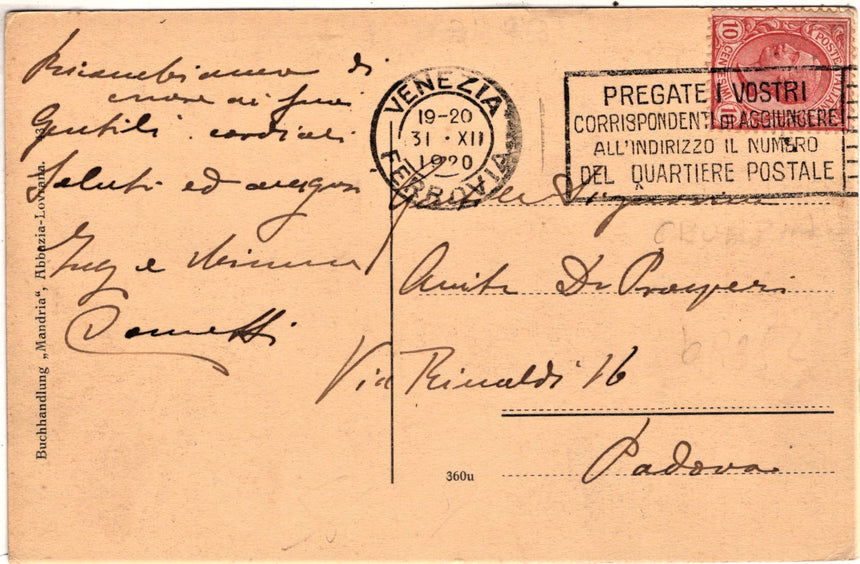 Ricambiamo di
cuore ai suoi
Gentili cordiali
Saluti ed auguri
e
Buchhandlung „Mandria“, Abbazia-Lovrana.
VENEZIA
19-20
31 · XII
1920
FERROVIA
PREGATE I VOSTRI
CORRISPONDENTI DI AGGIUNGERE
ALL'INDIRIZZO IL NUMERO
DEL QUARTIERE POSTALE
10
POSTE ITALIANE
Signorina
Anita De Prosperi
Via Rinaldi 16
Padova
360u